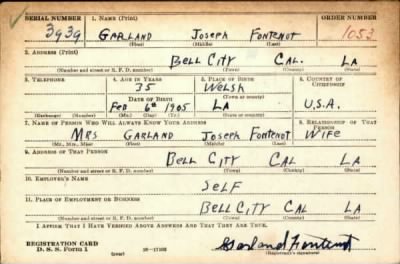 SERIAL NUMBER 1. NAME (Print) ORDER NUMBER
3939 GARLAND JOSEPH FONTENOT 1053
(First) (Middle) (Last)
2. ADDRESS (Print)
BELL CITY CAL. LA
(Number and street or R. F. D. number) (Town) (County) (State)
3. TELEPHONE 4. AGE IN YEARS 5. PLACE OF BIRTH 6. COUNTRY OF CITIZENSHIP
35 WELSH
DATE OF BIRTH (Town or county)
FEB 6th 1905 LA U.S.A.
(Exchange) (Number) (Mo.) (Day) (Yr.) (State or country)
7. NAME OF PERSON WHO WILL ALWAYS KNOW YOUR ADDRESS 8. RELATIONSHIP OF THAT PERSON
MRS GARLAND JOSEPH FONTENOT WIFE
(Mr., Mrs., Miss) (First) (Middle) (Last)
9. ADDRESS OF THAT PERSON
BELL CITY CAL LA
(Number and street or R. F. D. number) (Town) (County) (State)
10. EMPLOYER'S NAME
SELF
11. PLACE OF EMPLOYMENT OR BUSINESS
BELL CITY CAL LA
(Number and street or R. F. D. number) (Town) (County) (State)
I AFFIRM THAT I HAVE VERIFIED ABOVE ANSWERS AND THAT THEY ARE TRUE.
REGISTRATION CARD
D. S. S. Form 1 (over) Garland Fontenot
(Registrant's signature)